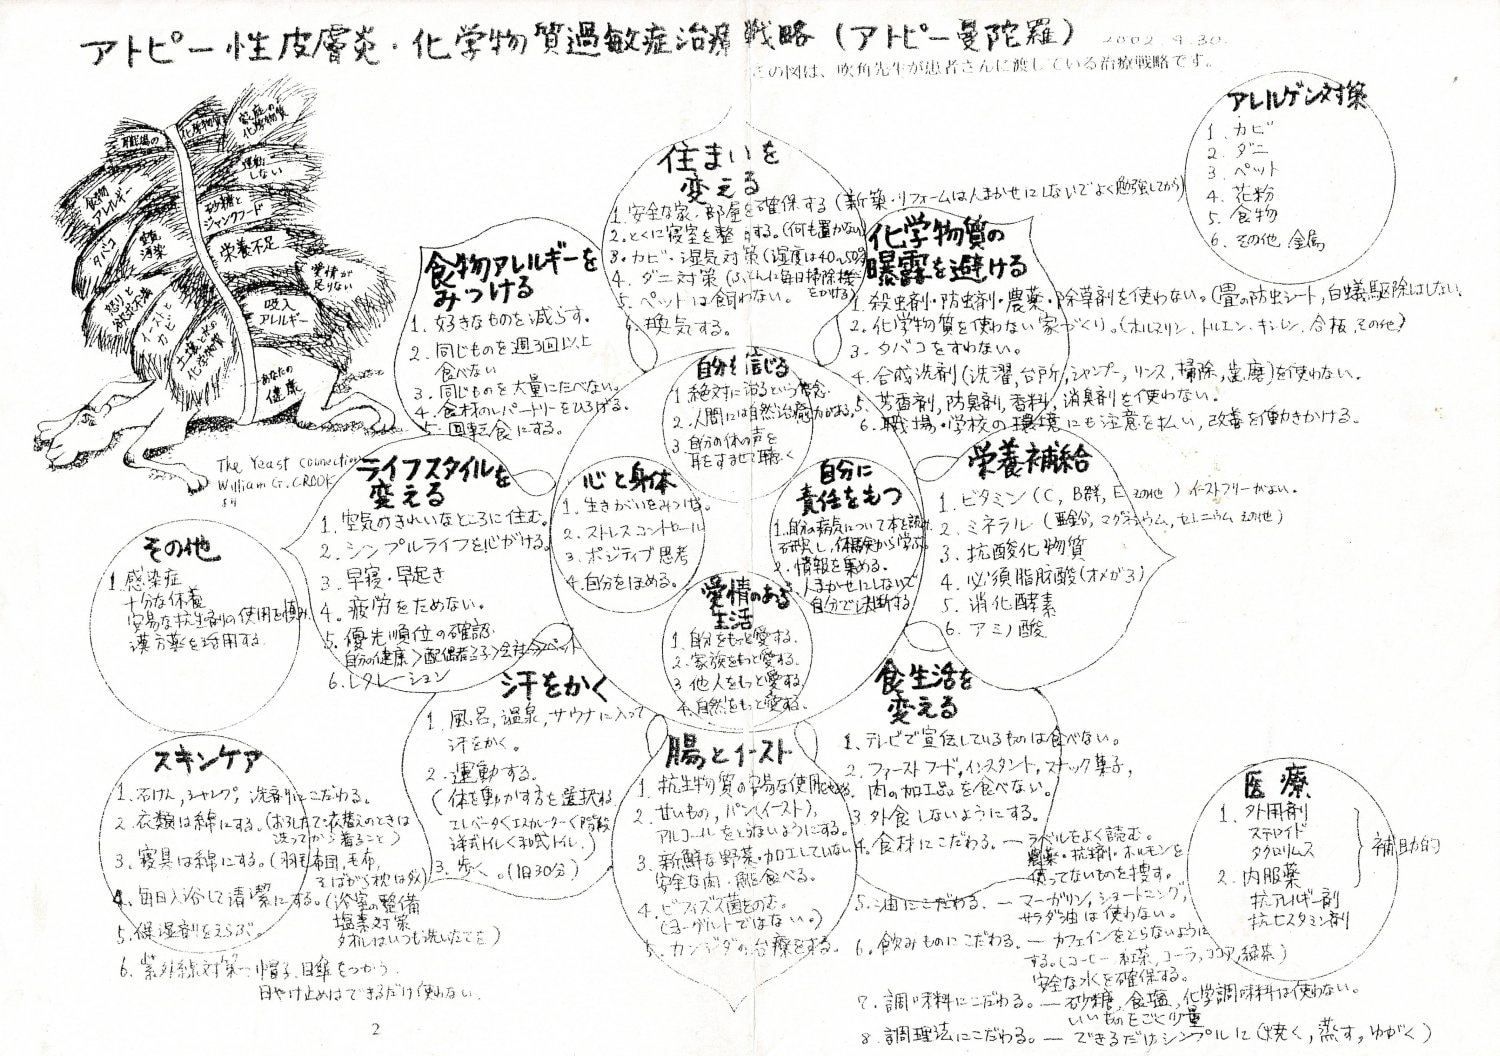 アトピー性皮膚炎・化学物質過敏症治療戦略（アトピー曼陀羅）
2002. 9.30.
この図は、吹角先生が患者さんに渡している治療戦略です。
職場の
化学物質
家庭の
化学物質
食物
アレルギー
運動
しない
砂糖と
ジャンクフード
タバコ
空気
汚染
栄養不足
愛情が
足りない
怒りと
イーストと
カビ
吸入
アレルギー
土壌と水の
化学物質
あなたの
健康
The Yeast Connection
William G. CROOK
84
住まいを
変える
1. 安全な家・部屋を確保する（新築・リフォームは人まかせにしないでよく勉強してから）
2. とくに寝室を整備する。（何も置かない）
3. カビ・湿気対策（湿度は40～50%）
4. ダニ対策（ふとんに毎日掃除機を
をかける）
5. ペットは飼わない。
6. 換気する。
アレルゲン対策
1. カビ
2. ダニ
3. ペット
4. 花粉
5. 食物
6. その他 金属
食物アレルギーを
みつける
1. 好きなものを減らす。
2. 同じものを週3回以上
食べない
3. 同じものを大量にたべない。
4. 食材のレパートリーをひろげる。
5. 回転食にする。
化学物質の
曝露を避ける
1. 殺虫剤・防虫剤・農薬・除草剤を使わない。（畳の防虫シート，白蟻駆除はしない。
2. 化学物質を使わない家づくり。（ホルマリン、トルエン、キシレン、合板、その他）
3. タバコをすわない。
4. 合成洗剤（洗濯，台所，シャンプー，リンス，掃除，歯磨）を使わない。
5. 芳香剤，防臭剤，香料，消臭剤を使わない。
6. 職場・学校の環境にも注意を払い，改善を働きかける。
自分を信じる
1. 絶対に治るという信念
2. 人間には自然治癒力がある。
3. 自分の体の声を
耳をすませて聴く
ライフスタイルを
変える
1. 空気のきれいなところに住む。
2. シンプルライフを心がける。
3. 早寝・早起き
4. 疲労をためない。
5. 優先順位の確認
自分の健康＞配偶者＞子＞会社＞ペット
6. レタレーション
心と身体
1. 生きがいをみつける。
2. ストレスコントロール
3. ポジティブ思考
4. 自分をほめる。
自分に
責任をもつ
1. 自分の病気について本を読み
研究し，体験から学ぶ。
2. 情報を集める。
3. 人まかせにしないで
自分で決断する
栄養補給
1. ビタミン（C，B群，E その他） イーストフリーがよい。
2. ミネラル（亜鉛，マグネシウム，セレニウム その他）
3. 抗酸化物質
4. 必須脂肪酸（オメガ3）
5. 消化酵素
6. アミノ酸
その他
1. 感染症
十分な休養
安易な抗生剤の使用を慎み
漢方薬を活用する
愛情のある
生活
1. 自分をもっと愛する。
2. 家族をもっと愛する。
3. 他人をもっと愛する。
4. 自然をもっと愛する。
汗をかく
1. 風呂，温泉，サウナに入って
汗をかく。
2. 運動する。
（体を動かす方を選択する
エレベータ＜エスカレーター＜階段
洋式トイレ＜和式トイレ）
3. 歩く。（1日30分）
食生活を
変える
1. テレビで宣伝しているものは食べない。
2. ファーストフード，インスタント，スナック菓子，
肉の加工品を食べない。
3. 外食しないようにする。
4. 食材にこだわる。― ラベルをよく読む。
農薬・抗生剤・ホルモンを
使ってないものを捜す。
5. 油にこだわる。― マーガリン，ショートニング，
サラダ油は使わない。
6. 飲みものにこだわる。― カフェインをとらないように
する。（コーヒー、紅茶，コーラ，ココア，緑茶）
安全な水を確保する。
7. 調味料にこだわる。― 砂糖，食塩，化学調味料は使わない。
いいものをごく少量
8. 調理法にこだわる。― できるだけシンプルに（焼く，蒸す，ゆがく）
スキンケア
1. 石けん，シャンプ，洗剤にこだわる。
2. 衣類は綿にする。（おろしたて・衣替えのときは
洗ってから着ること）
3. 寝具は綿にする。（羽毛布団，毛布，
そばがら枕はダメ）
4. 毎日入浴して清潔にする。（浴室の整備
塩素対策
タオルはいつも洗いたてを）
5. 保湿剤をえらぶ。
6. 紫外線対策→帽子，日傘をつかう
日やけ止めはできるだけ使わない。
腸とイースト
1. 抗生物質の安易な使用をやめる
2. 甘いもの，パン（イースト），
アルコールをとらないようにする。
3. 新鮮な野菜・加工していない
安全な肉・魚を食べる。
4. ビフィズス菌をのむ。
（ヨーグルトではない。）
5. カンジダの治療をする。
医療
1. 外用剤
ステロイド
タクロリムス
2. 内服薬
抗アレルギー剤
抗ヒスタミン剤
補助的
2